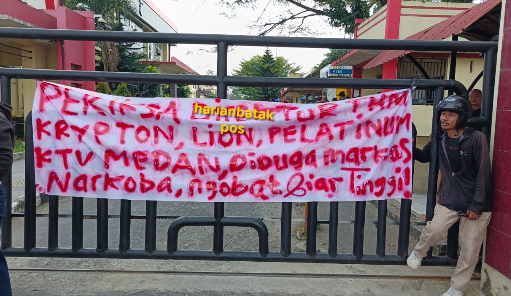 PERIKSA
KRYPTON, LION, PELATINUM
KTV MEDAN, Diduga markas
Narkoba, ngobat biar Tinggi!
harianbatak
pos